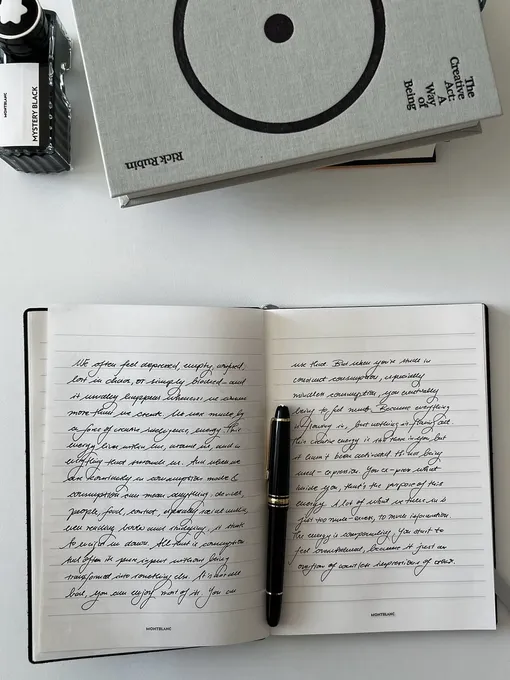 MONTBLANC
MYSTERY BLACK
The
Creative
Act: A
Way
of
Being
Rick Rubin
We often feel depressed, empty, worried,
lost in chaos, or simply blocked - and
it usually happens whenever we consume
more than we create. We were made by
a force of creative intelligence, energy. This
energy lives within us, around us, and in
everything that surrounds us. And when we
are constantly in consumption mode &
consumption can mean anything: clothes,
people, food, content, especially social media,
even reading books and studying, it starts
to weigh us down. All that is consumption
and often it's pure input without being
transformed into something else. It is not all
bad, you can enjoy most of it. You can
MONTBLANC
use that. But when you're stuck in
constant consumption, especially
mindless consumption, you eventually
being to feel numb. Because everything
is flowing in, but nothing is flowing out.
This creative energy is in you, but
it hasn't been activated to its being
used - expression. You ex-press what's
inside you, that's the purpose of this
energy. A lot of what we take in is
just too much - noise, too much information.
The energy is compounding. You start to
feel overwhelmed, because it just an
ovation of countless impressions of others.
MONTBLANC